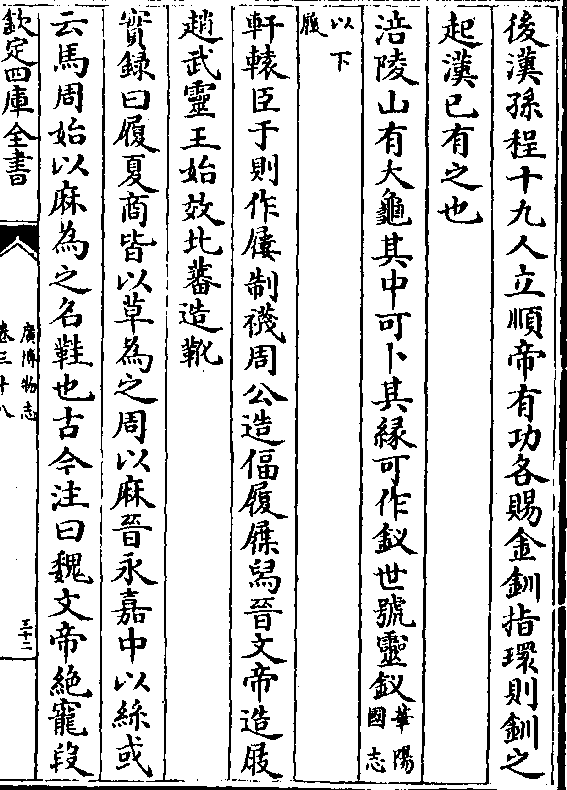 後漢孫程十九人立順帝有功各賜金釧指環則釧之
起漢已有之也
涪陵山有大龜其中可卜其緣可作釵世號靈釵華陽
國志
以下
履
軒轅臣于則作屨制襪周公造偪履屧舄晉文帝造屐
趙武靈王始效北蕃造靴
實錄曰履夏商皆以草為之周以麻晉永嘉中以絲或
云馬周始以麻為之名鞋也古今注曰魏文帝絶寵段
欽定四庫全書
廣博物志
卷三十八
三十二